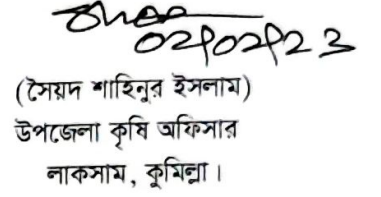 02/02/23
(সৈয়দ শাহিনুর ইসলাম)
উপজেলা কৃষি অফিসার
লাকসাম, কুমিল্লা।